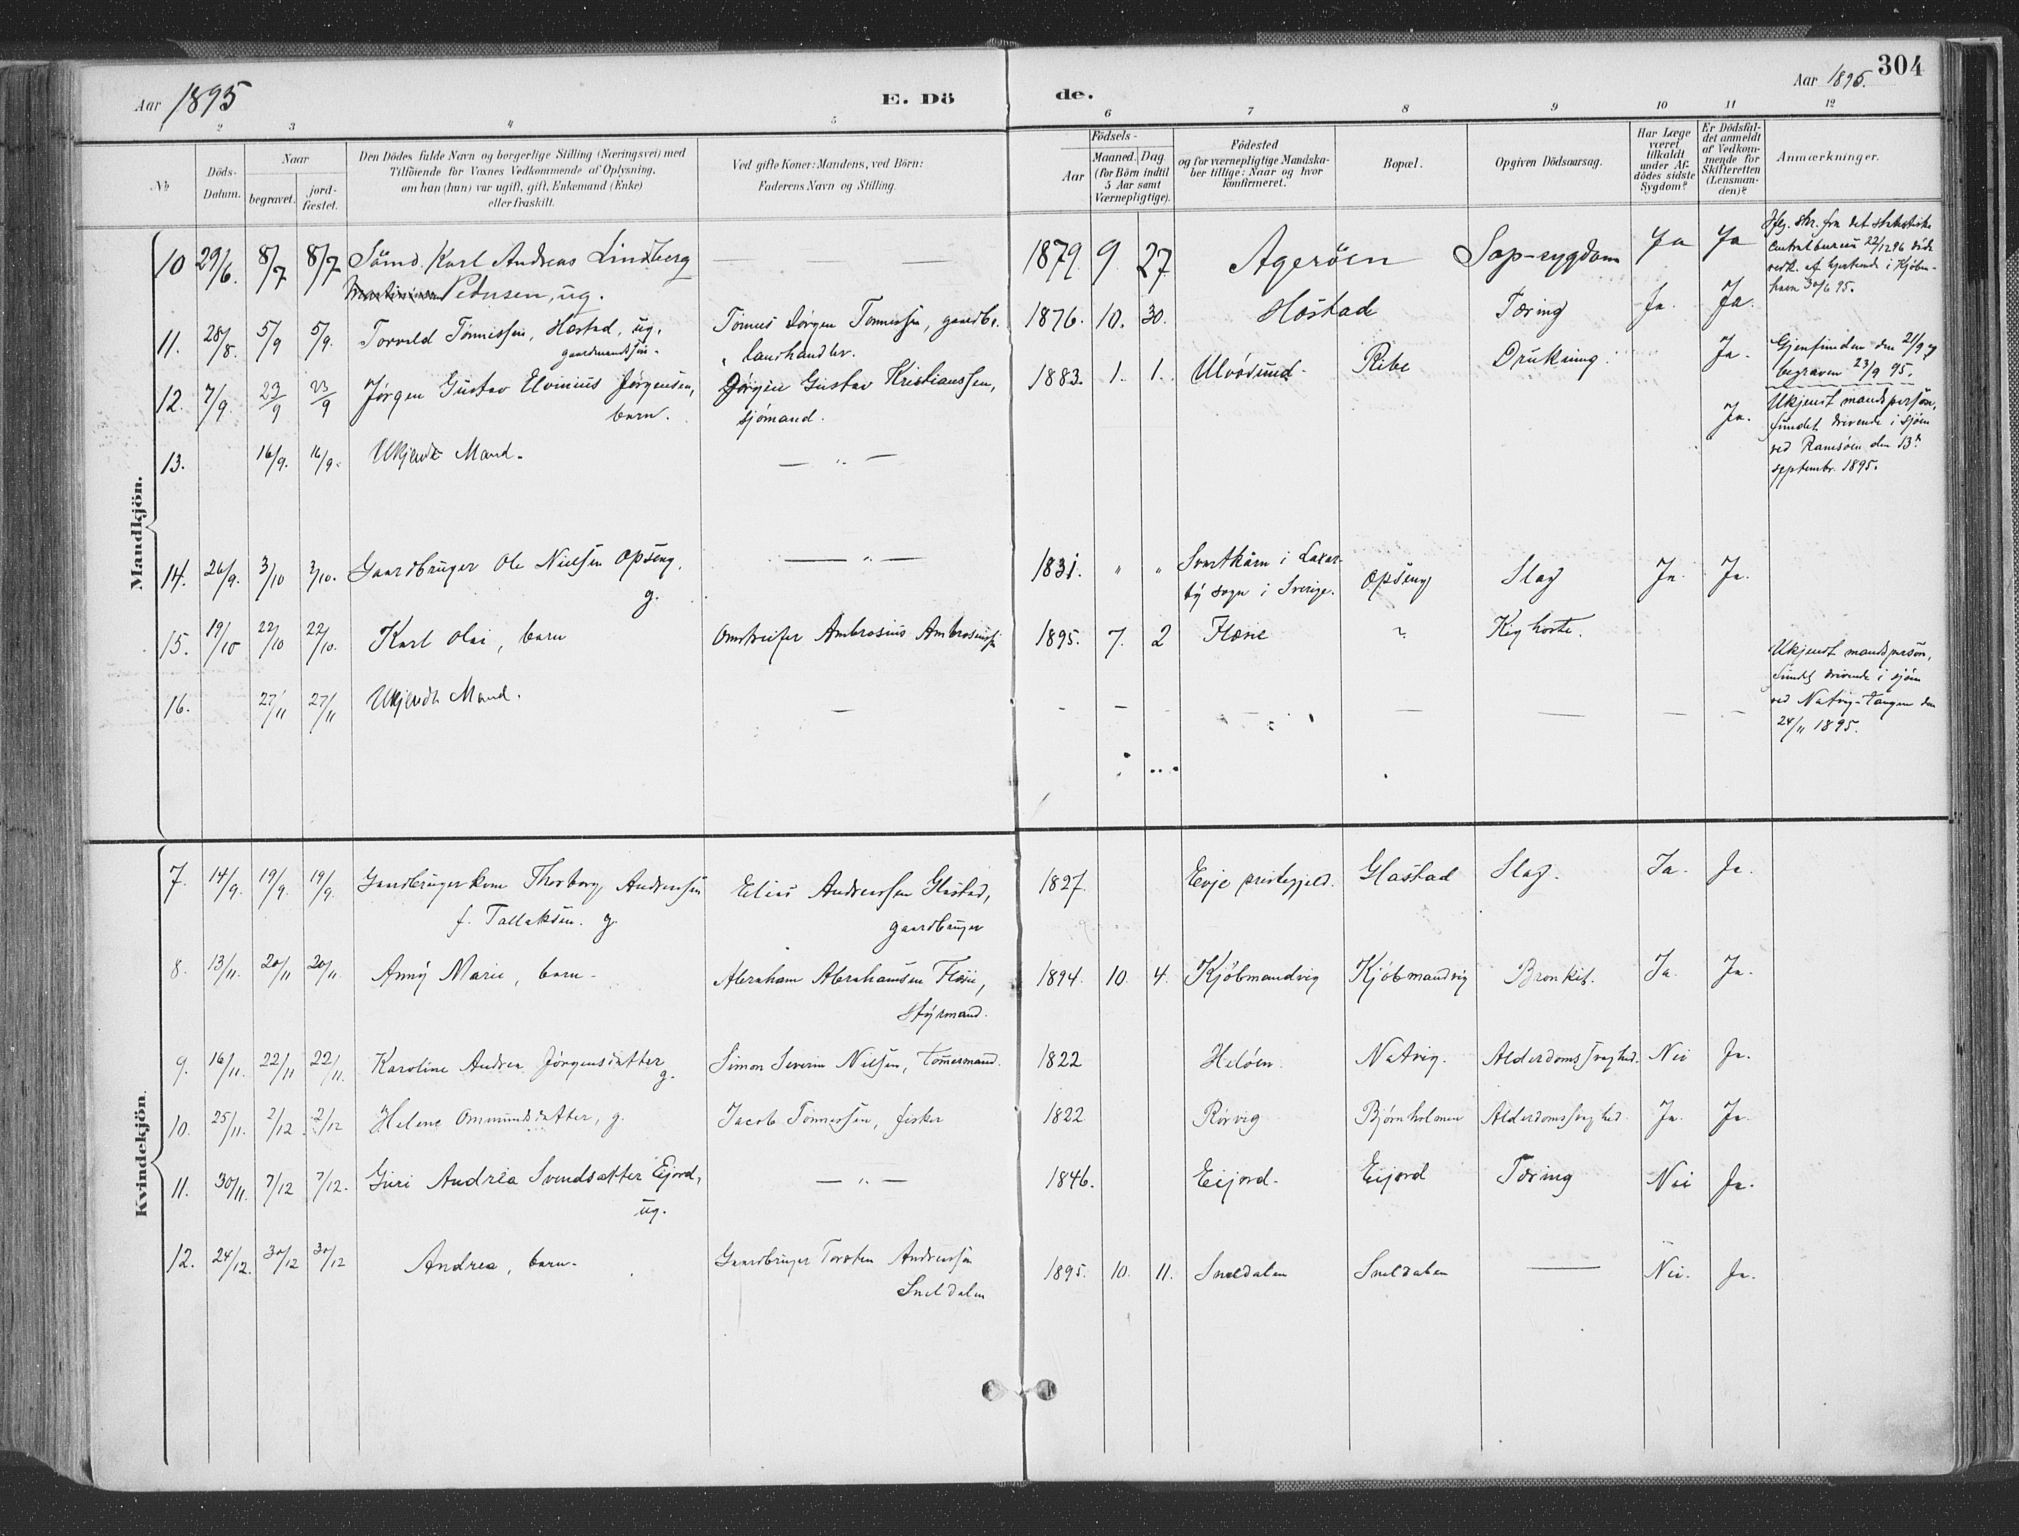 Aar 1895
E. Dö de.
Aar 1895.
304
1 2 3 4 5 6 7 8 9 10 11 12
№
Döds-Datum.
Naar
begravet.
jord-fæstet.
Den Dödes fulde Navn og borgerlige Stilling (Næringsvei) med
Tilföiende for Voxnes Vedkommende af Oplysning,
om han (hun) var ugift, gift, Enkemand (Enke)
eller fraskilt.
Ved gifte Koner: Mandens, ved Börn:
Faderens Navn og Stilling.
Födsels-
Aar
Maaned. Dag
(for Börn indtil
5 Aar samt
Værnepligtige).
Födested
og for værnepligtige Mandska-
ber tillige: Naar og hvor
konfirmeret.
Bopæl.
Opgiven Dödsaarsag.
Har Læge
været
tilkaldt
under Af-
dødes sidste
Sygdom?
Er Dödsfal-
det anmeldt
af Vedkom-
mende for
Skifteretten
(Lensman-
den)?
Anmærkninger.
Mandkjön.
10 29/6. 8/7 8/7 Sömd. Karl Andreas Lindberg
Pedersen, ug.
1879. 9. 27. Agerøen Ja Ja
Ifg. skr. fra det statistiske
Centralbureau 22/12 96
i Kjøben-
havn 30/6 95.
11. 28/8. 5/9 5/9. Torvald Tønnessen, Hæstad, ug.
gaardmandssøn.
Tønnes Jørgen Tønnessen, gaardbr.
landhandler.
1876. 10. 30. Hæstad Tæring Ja. Ja.
12. 7/9. 23/9 23/9 Jørgen Gustav Elvinius Jørgensen,
barn.
Jørgen Gustav Kristianssen,
sjømand.
1883. 1. 1. Ulvøsund. Ribe Drukning. Ja.
Gjenfunden den 21/9 og
begraven 23/9 95.
13. 16/9. 16/9. Ukjendt Mand.
— „ —
Ja.
Ukjendt mandsperson,
fundet drivende i sjøen
ved Ramsøen den 13de
septembr. 1895.
14. 26/9. 3/10 3/10. Gaardbruger Ole Nielsen Opseng.
g.
— „ —
1831. „ „ Svartkärn i Laxar-
by sogn i Sverige. Opseng Slag Ja. Ja.
15. 19/10 22/10 22/10. Karl Olai, barn
Omstreifer Ambrosius Ambrosiussen
1895. 7. 2 Flæsie ? Kighoste.
16. 27/11 27/11 Ukjendt Mand.
— — — — — — — —
Ukjendt mandsperson,
fundet drivende i sjøen
ved Natvig-tangen den
24/11 1895.
Kvindekjön.
7. 14/9. 19/9. 19/9. Gaardbrugerkone Thorborg Andreassen
f. Tallaksen. g
Elias Andreassen Glastad,
gaardbruger
1827. Evje prestegjeld. Glastad Slag. Ja. Ja.
8. 13/11. 20/11 20/11. Anny Marie, barn.
Abraham Abrahamsen Flæsie,
styrmand.
1894. 10. 4. Kjöbmandvig Kjöbmandvig Bronkit. Ja. Ja.
9. 16/11. 22/11 22/11. Karoline Andrea Jørgensdatter
g.
Simon Severin Nielsen, tømmermand.
1822 Heløen. Natvig. Alderdomssvaghed. Nei Ja.
10. 25/11. 2/12. 2/12 Helene Ommundsdatter, g.
Jacob Tønnessen, fisker
1822 Rørvig Bjørnholmen Alderdomssvaghed. Ja. Ja.
11. 30/11. 7/12 7/12. Guri Andrea Svendsdatter Eijord,
ug.
— „ —
1846. Eijord. Eijord Tæring Nei Ja.
12. 24/12. 30/12 30/12 Andrea, barn.
Gaardbruger Torsten Andreassen
Sneldalen
1895. 10. 11. Sneldalen Sneldalen — Nei. Ja.